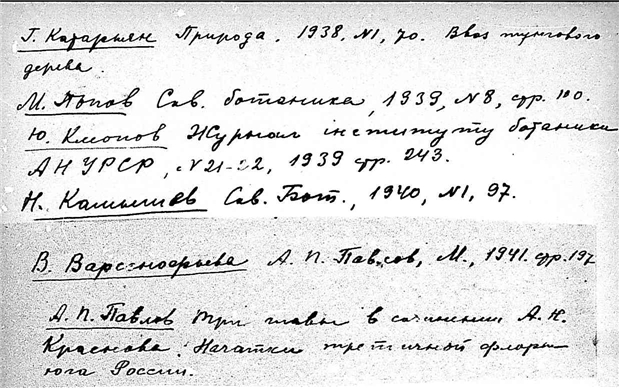 Г. Катарьян Природа. 1938, N1, 70. Ввоз тунгового
дерева.
М. Попов Сов. ботаника, 1939, N8, стр. 100.
Ю. Клопов Журнал iнституту ботанiки
АН УРСР, N21-22, 1939 стр. 243.
Н. Камышев Сов. Бот., 1940, N1, 97.
В. Варсанофьева А. П. Павлов, М., 1941. стр. 197
А. П. Павлов Три главы в сочинении А. Н.
Краснова: Начатки третичной флоры
юга России.